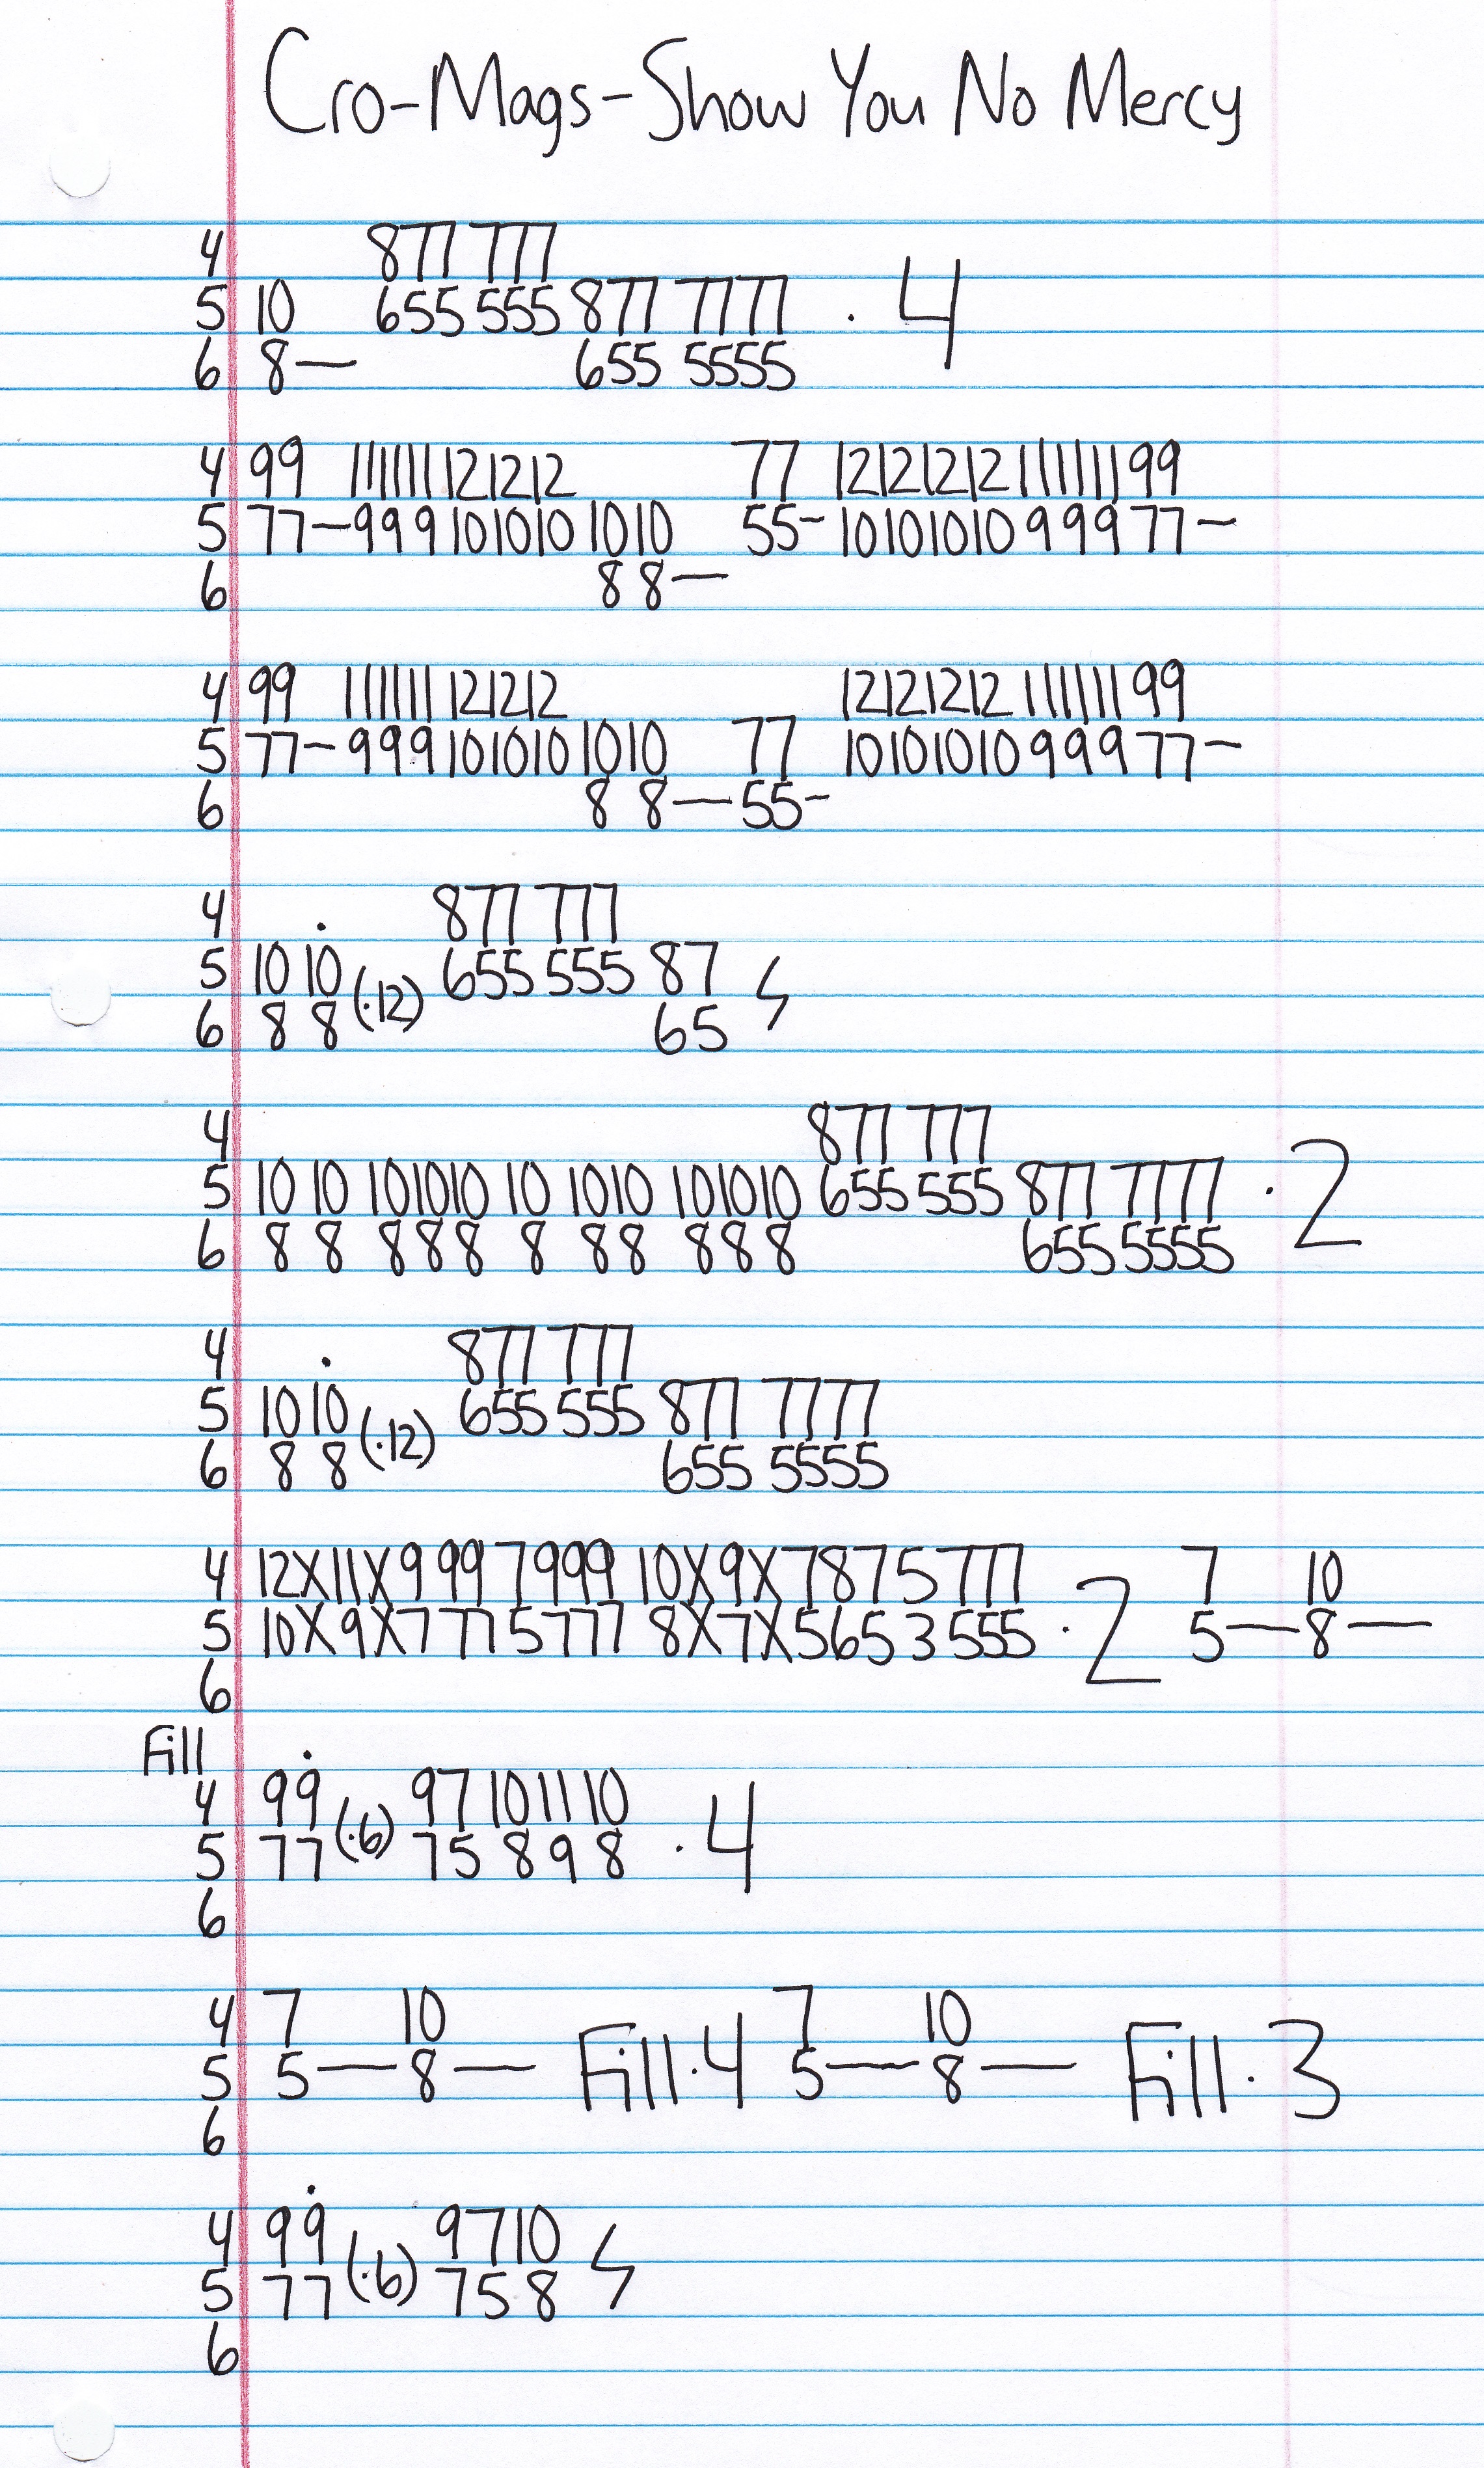 Cro-Mags-Show You No Mercy
4 877 777
5 10 655 555 877 7777 · 4
6 8— 655 5555
4 99 11 11 11 12 12 12 77 12 12 12 12 11 11 11 99
5 77—9 9 9 10 10 10 10 10 55- 10 10 10 10 9 9 9 77—
6 8 8—
4 99 11 11 11 12 12 12 12 12 12 12 11 11 11 99
5 77—9 9 9 10 10 10 10 10 77 10 10 10 10 9 9 9 77—
6 8 8—55-
4 . 877 777
5 10 10 (·12) 655 555 87 ϟ
6 8 8 65
4 877 777
5 10 10 10 10 10 10 10 10 10 10 10 655 555 877 7777 · 2
6 8 8 8 8 8 8 8 8 8 8 8 655 5555
4 . 877 777
5 10 10 (·12) 655 555 877 7777
6 8 8 655 5555
4 12X11X9 99 7999 10X9X7875 777 7 10
5 10X9X7 775777 8X7X5653 555 · 2 5—8—
6
Fill .
4 99 (·6) 97 10 11 10 · 4
5 77 75 8 9 8
6
4 7 10 7 10
5 5—8— Fill·4 5—8— Fill·3
6
.
4 99 (·6) 97 10 ϟ
5 77 75 8
6